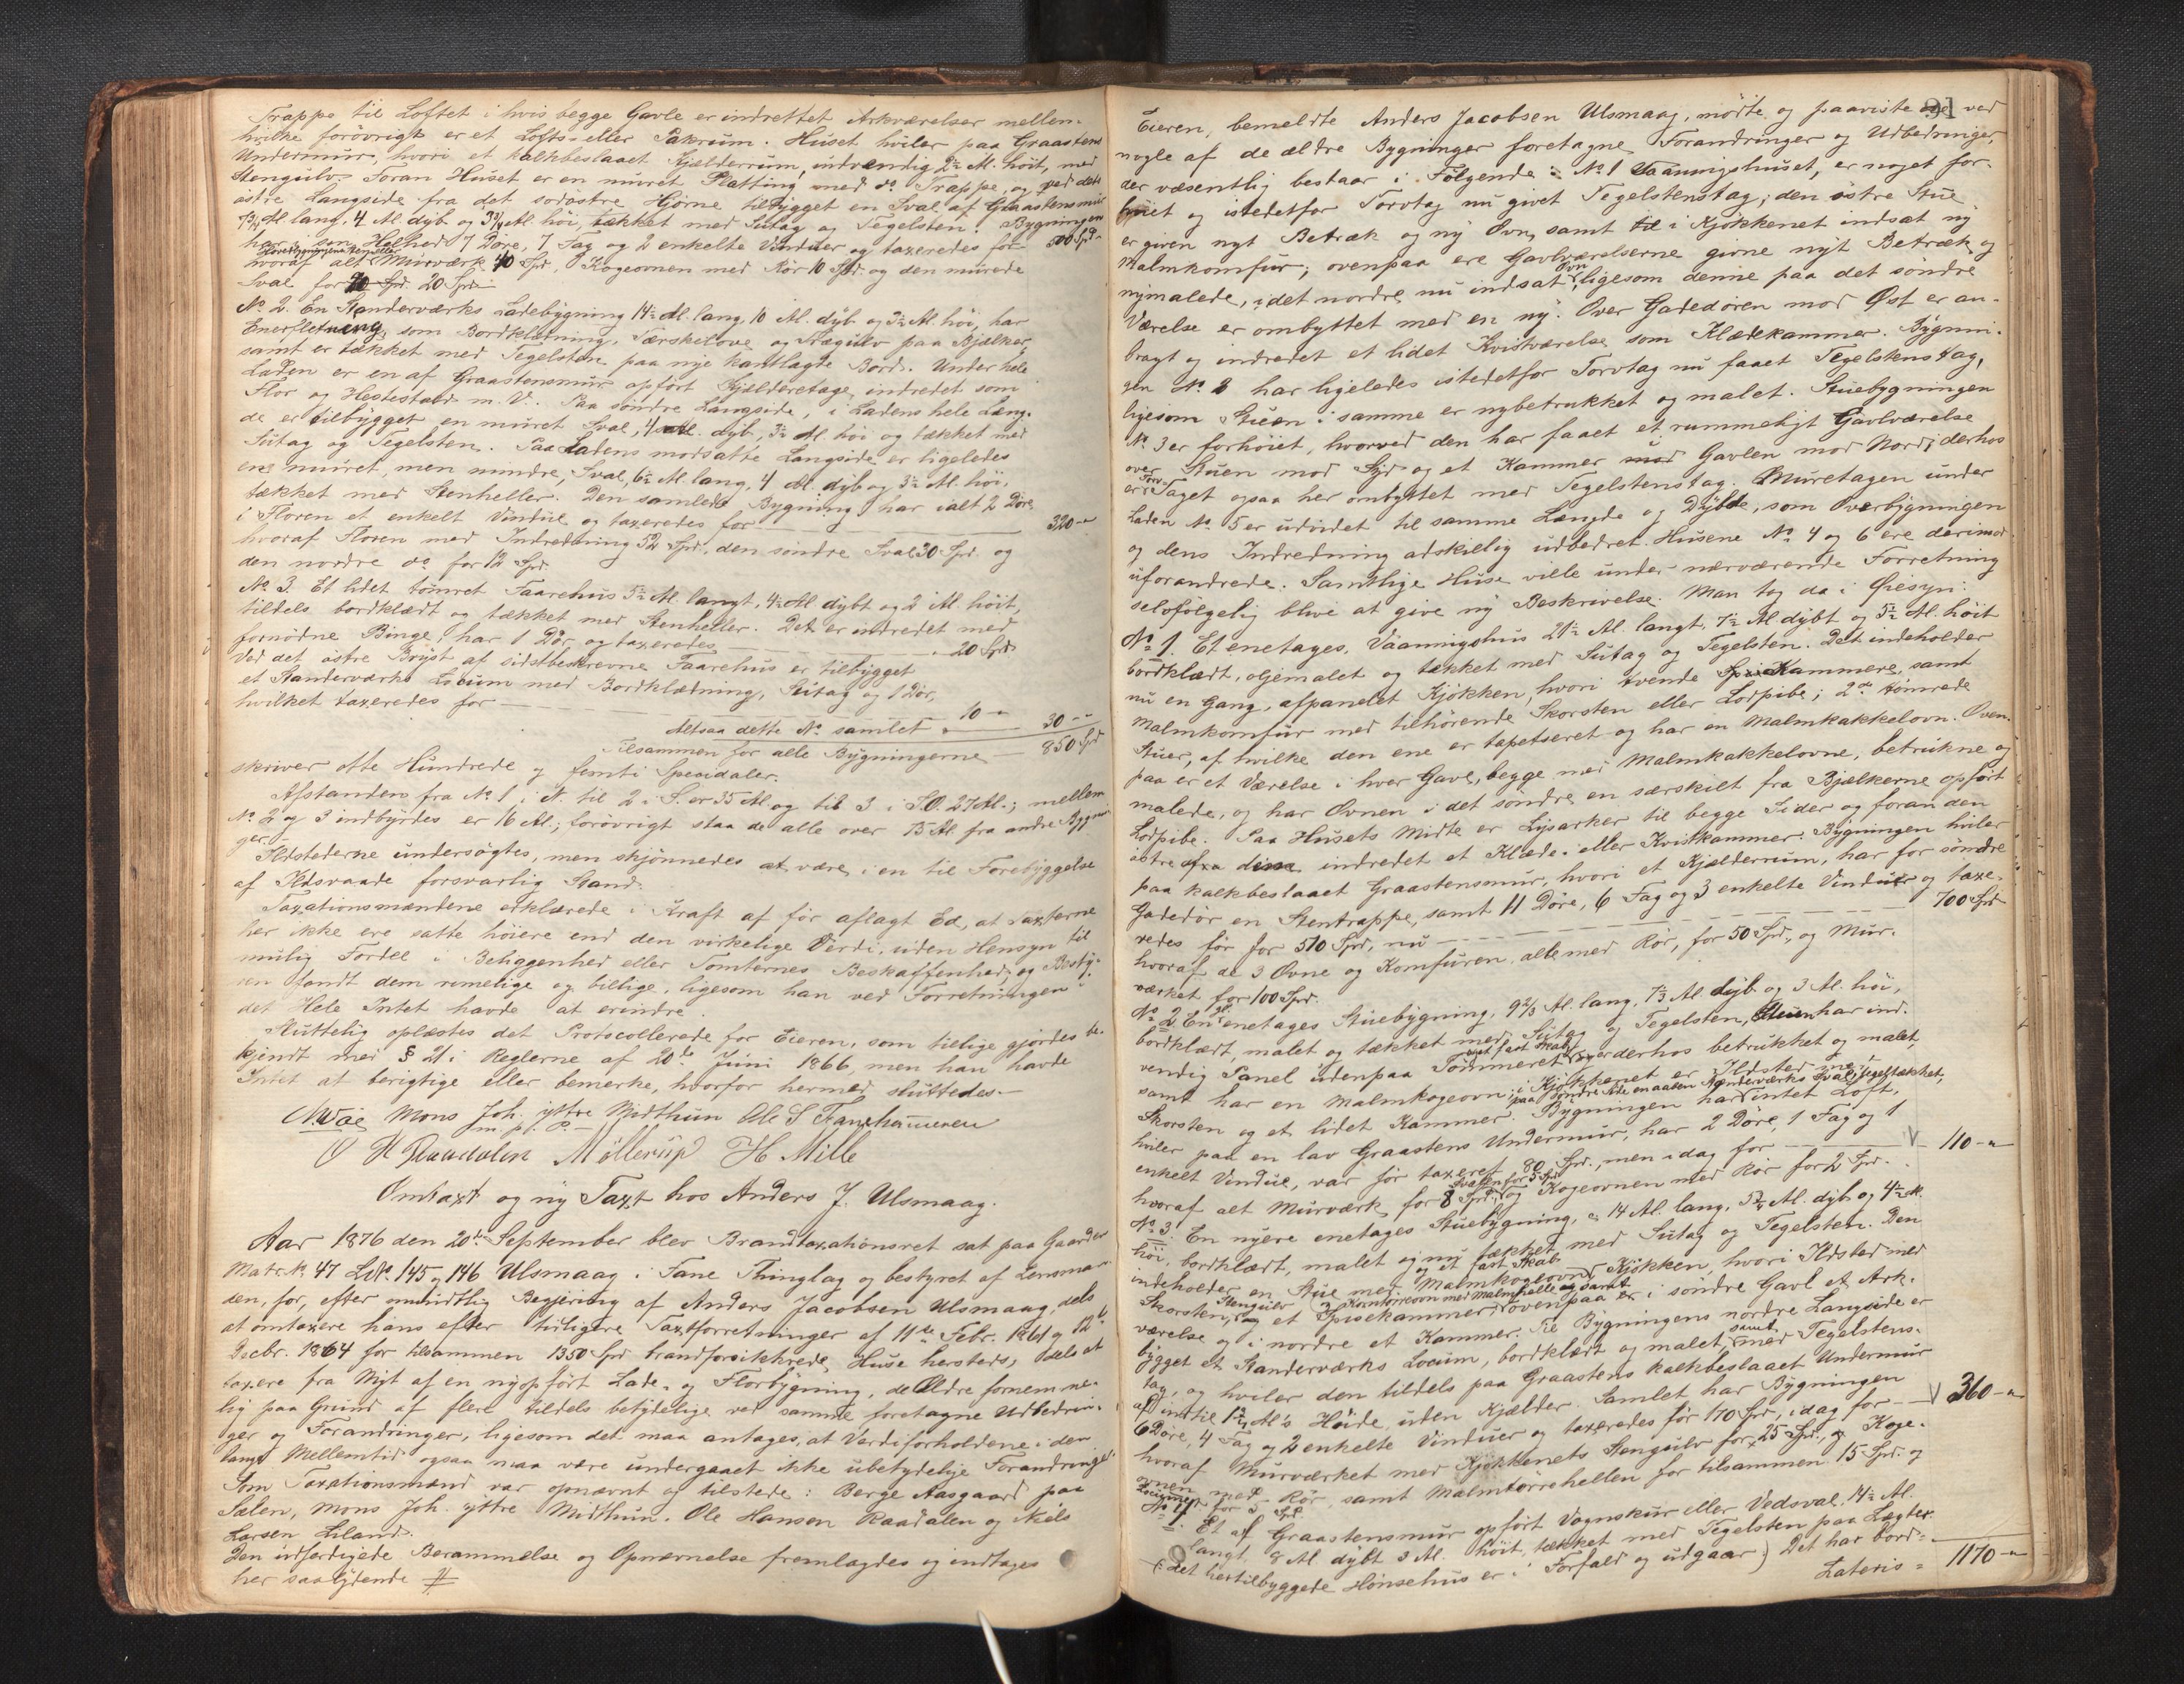 Trappe til Loftet i hvis begge Gavle er indrettet Arkværelser mellem
hvilke forövrigt er et Lofts- eller Pakrum. Huset hviler paa Graastens
Undermur, hvori et kalkbeslaaet Kjælderrum, indvendig 2½ Al. höit, med
Stengulv. Foran Huset er en muret Platting med do Trappe, og ved dets
östre Langside fra det sydöstre Hjörne tilbygget en Sval af Graastensmur
7¾ Al. lang, 4 Al. dyb og 3¾ Al. höi, tækket med Sutag og Tegelsten. Bygningen
har i sin Helhed 7 Döre, 7 Fag og 2 enkelte Vinduer og taxeredes for 500 Spd.
hvoraf alt Hovedbygningens Murværk 40 Spd., Kogeovnen med Rör 10 Spd. og den murede
Sval for 20 Spd.
No 2. En Standerværks Ladebygning 14½ Al. lang, 10 Al. dyb og 3½ Al. höi, har
Enerfletning, som Bordklædning, Tærskelove og Trægulv paa Bjælker,
samt er tækket med Tegelsten paa nye kantlagte Bord. Under hele
Laden er en af Graastensmur opfört Kjælderetage, indredet som
Flor og Hestestald m. V. Paa söndre Langside, i Ladens hele Læng-
de er tilbygget en muret Sval, 4 Al. dyb, 3½ Al. höi og tækket med
Sutag og Tegelsten. Paa Ladens modsatte Langside er ligeledes
en muret, men mindre, Sval, 6½ Al. lang, 4 Al. dyb og 3½ Al. höi,
tækket med Stenheller. Den samlede Bygning har ialt 2 Döre,
i Floren et enkelt Vindue og taxeredes for 320 "
hvoraf Floren med Indredning 52 Spd., den söndre Sval 30 Spd. og
den nordre do for 12 Spd.
No 3. Et lidet tömret Faarehus 5½ Al. langt, 4½ Al. dybt og 2 Al. höit,
tildels bordklædt og tækket med Stenheller. Det er indredet med
fornödne Binge, har 1 Dör og taxeredes 20 Spd.
Ved det östre Bryst af sidstbeskrevne Faarehus er tilbygget
et Standerværks Locum med Bordklædning, Sutag og 1 Dör,
hvilket taxeredes for 10 "
Altsaa dette No samlet 30 "
Tilsammen for alle Bygningerne 850 Spd
skriver otte Hundrede og femti Speciedaler.
Afstanden fra No 1 i N. til 2 i S. er 35 Al. og til 3 i S.O. 27 Al.; mellem
No 2 og 3 indbyrdes er 16 Al.; forövrigt staa de alle over 15 Al. fra andre Bygnin-
ger.
Ildstederne undersögtes, men skjönnedes at være i en til Forebyggelse
af Ildsvaade forsvarlig Stand.
Taxationsmændene erklærede i Kraft af för aflagt Ed, at Taxterne
her ikke ere satte höiere end den virkelige Værdi, uden Hensyn til
mulig Fordel i Beliggenhed eller Tomternes Beskaffenhed, og Besty-
ren fandt dem rimelige og billige, ligesom han ved Forretningen i
det Hele Intet havde at erindre.
Sluttelig oplæstes det Protocollerede for Eieren, som tillige gjördes be-
kjendt med § 21 i Reglerne af 20de Juni 1866, men han havde
Intet at berigtige eller bemerke, hvorfor hermed sluttedes.
Mons Joh. yttre Midthun Ole S
m. p. P.
H Raadalen Möllerup H. Mille
Omtaxt og ny Taxt hos Anders J. Ulsmaag.
Aar 1876 den 20de September blev Brandtaxationsret sat paa Gaarden
Matr. No 47 LNo. 145 og 146 Ulsmaag i Fane Thinglag og bestyret af Lensman-
den, for, efter mundtlig Begjering af Anders Jacobsen Ulsmaag, dels
at omtaxere hans efter tidligere Taxtforretninger af 11te Febr. 1861 og 12te
Decbr. 1864 for tilsammen 1350 Spd brandforsikkrede Huse hersteds, dels at
taxere fra Nyt af en nyopfört Lade- og Florbygning, de Ældre fornemme-
lig paa Grund af flere tildels betydelige ved samme foretagne Udbedrin-
ger og Forandringer, ligesom det maa antages, at Værdiforholdene i den
lange Mellemtid ogsaa maa være undergaaet ikke ubetydelige Forandringer.
Som Taxationsmænd var opnævnt og tilstede: Berge Aasgaard paa
Sælen, Mons Joh. yttre Midthun, Ole Hansen Raadalen og Niels
Larsen Liland.
Den udfærdigede Berammelse og Opnævnelse fremlagdes og indtages
her saalydende #
91
Eieren, bemeldte Anders Jacobsen Ulsmaag, mödte og paaviste de ved
nogle af de ældre Bygninger foretagne Forandringer og Udbedringer,
der væsentlig bestaar i Fölgende: No 1 Vaaningshuset, er noget for-
höiet og istedetfor Torvtag nu givet Tegelstenstag; den östre Stue
er given nyt Betræk og ny Ovn, samt i Kjökkenet indsat ny
Malmkomfur; ovenpaa ere Gavlværelserne givne nyt Betræk og
nymalede, i det nordre nu indsat Ovn, ligesom denne paa det söndre
Værelse er ombyttet med en ny. Over Gadedören mod Öst er an-
bragt og indredet et lidet Kvistværelse som Klædekammer. Bygnin-
gen No 2 har ligeledes istedetfor Torvtag nu faaet Tegelstenstag,
ligesom Stuen i samme er nybetrukket og malet. Stuebygningen
No 3 er forhöiet, hvorved den har faaet et rummeligt Gavlværelse
over Stuen mod Syd og et Kammer Gavlen mod Nord; derhos
er Torv-Taget ogsaa her ombyttet med Tegelstenstag. Muretagen under
Laden No 5 er udvidet til samme Længde og Dybde, som Overbygningen
og dens Indredning adskillig udbedret. Husene No 4 og 6 ere derimod
uforandrede. Samtlige Huse ville under nærværende Forretning
selvfölgelig blive at give ny Beskrivelse. Man tog da i Öiesyn:
No 1. Et enetages Vaaningshus 21½ Al. langt, 7½ Al. dybt og 5½ Al. höit
bordklædt, oljemalet og tækket med Sutag og Tegelsten. Det indeholder
nu en Gang, afpanelet Kjökken, hvori tvende Kammere, samt
Malmkomfur med tilhörende Skorsten eller Lodpibe; 2de tömrede
Stuer, af hvilke den ene er tapetseret og har en Malmkakkelovn. Oven-
paa er et Værelse i hver Gavl, begge med Malmkakkelovne, betrukne og
malede, og har Ovnen i det söndre en særskilt fra Bjælkerne opfört
Lodpibe. Paa Husets Midte er Lysarker til begge Sider og foran den
östre af disse indredet et Klæde- eller Kvistkammer. Bygningen hviler
paa kalkbeslaaet Graastensmur, hvori et Kjælderrum, har for söndre
Gadedör en Stentrappe, samt 11 Döre, 6 Fag og 3 enkelte Vinduer og taxe-
redes för for 510 Spd, nu 700 Spd
hvoraf de 3 Ovne og Komfuren, alle med Rör, for 50 Spd., og Mur-
værket for 100 Spd.
No 2 En enetages Stuebygning, 9⅔ Al. lang, 7⅓ Al. dyb og 3 Al. höi,
bordklædt, malet og tækket med Sutag og Tegelsten, Stuen har ind-
vendig Panel udenpaa Tömmeret, er derhos betrukket og malet,
samt har en Malmkogeovn; i Kjökkenet er Ildsted med
paa Söndre Side en aaben Standerværks Sval, tegeltækket,
Skorsten og et lidet Kammer. Bygningen har intet Loft,
hviler paa en lav Graastens Undermur, har 2 Döre, 1 Fag og 1
enkelt Vindue, var för taxeret 80 Spd., men idag for 110 "
hvoraf alt Murværk for 8 Spd., Svalen for 5 Spd. og Kogeovnen med Rör for 2 Spd.
No 3. En nyere enetages Stuebygning, 14 Al. lang, 5¾ Al. dyb og 4½ Al.
höi, bordklædt, malet og nu tækket med Sutag og Tegelsten. Den
indeholder en Stue med Malmkogeovn og et fast Skab, Kjökken, hvori Ildsted med
Skorsten, Stengulv, Korntörreovn med Malmhelle samt et Spisekammer; ovenpaa er i söndre Gavl et Ark-
værelse og i nordre et Kammer. Til Bygningens nordre Langside er
bygget et Standerværks Locum, bordklædt og malet, samt med Tegelstens-
tag, og hviler den tildels paa Graastens kalkbeslaaet Undermur
af indtil 1¾ Al's Höide, uden Kjælder. Samlet har Bygningen
6 Döre, 4 Fag og 2 enkelte Vinduer og taxeredes för 170 Spd, idag for 360 "
hvoraf Murværket med Kjökkenets Stengulv for 25 Spd., Koge-
ovnen med Rör, samt Malmtörrehellen for tilsammen 15 Spd. og
Locumet for 5 Spd.
No 4. Et af Graastensmur opfört Vognskur eller Vedsval, 14½ Al.
langt, 8 Al. dybt 3 Al. höit, tækket med Tegelsten paa Lægter.
(det hertilbyggede Hönsehus er i Forfald og udgaar.) Det har bord-
Lateris = 1170 "